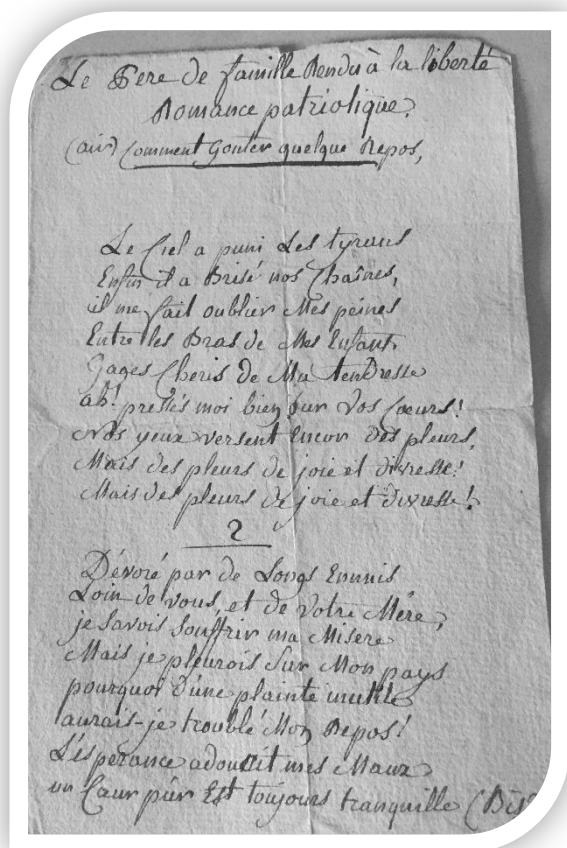 Le Pere de famille Rendu à la liberté
Romance patriotique.
(air) Comment Gouter quelque Repos,
Le Ciel a puni Les tyrans
Enfin il a Brisé nos Chaînes,
il me fait oublier Mes peines
Entre les Bras de Mes Enfants
Gages Cheris de Ma tendresse
ah! pressés moi bien sur Vos Cœurs!
Nos yeux versent Encor des pleurs,
Mais des pleurs de joie et divresse!
Mais des pleurs de joie et divresse!
2
Dévoré par de Longs Ennuis
Loin de vous, et de Votre Mére,
je savois souffrir ma Misere
Mais je pleurois Sur Mon pays
pourquoi d'une plainte inutile
aurais-je troublé Mon Repos!
L'ésperance adoucit mes Maux
un Cœur pur Est toujours tranquille (Bis